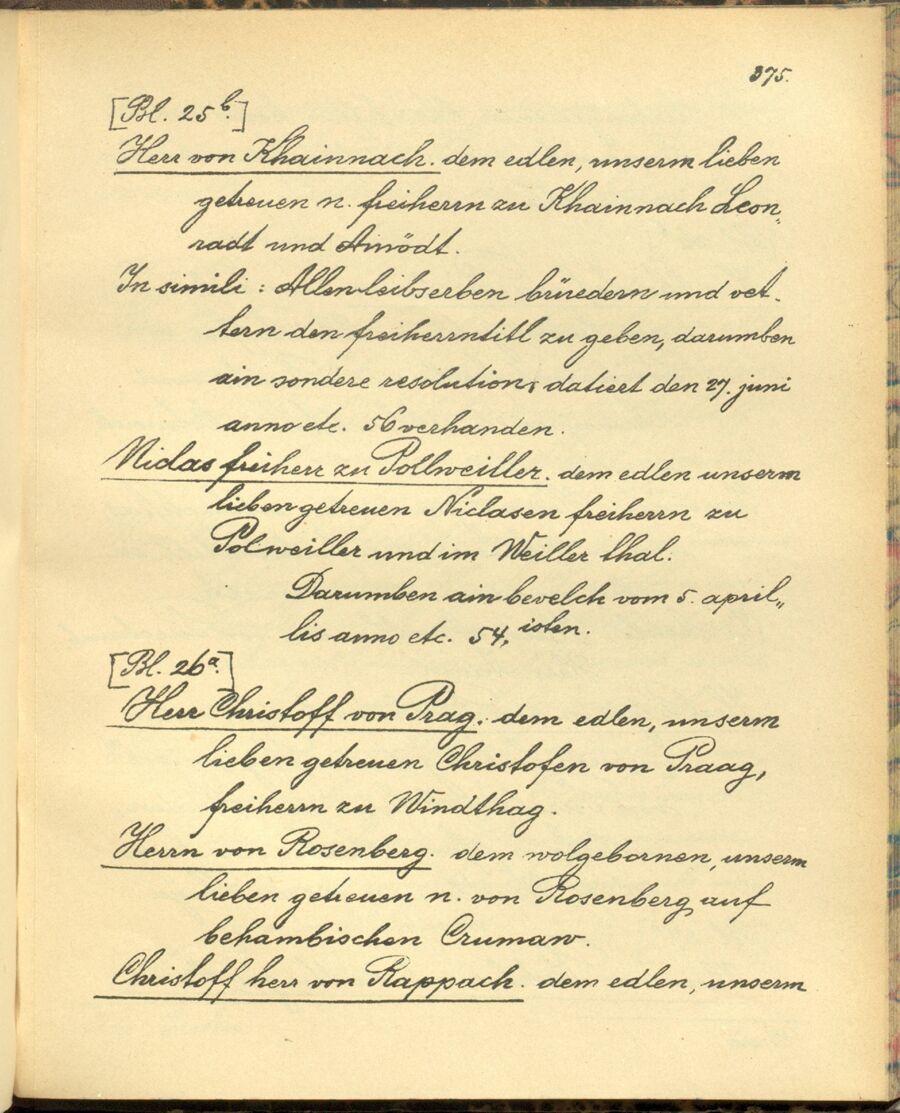 375.
[Bl. 25b.]
Herr von Khainnach. dem edlen, unserm lieben
getreuen n. freiherrn zu Khainnach Leon„
radt und Ainödt.
In simili: Allen leibserben brüedern und vet-
tern den freiherrntitl zu geben, darumben
ain sondere resolution, datiert den 27. juni
anno etc. 56 verhanden.
Niclas freiherr zu Pollweiller. dem edlen unserm
lieben getreuen Niclasen freiherrn zu
Polweiller und im Weiller thal.
Darumben ain bevelch vom 5. april„
lis anno etc. 54, isten.
[Bl. 26a.]
Herr Christoff von Prag. dem edlen, unserm
lieben getreuen Christofen von Praag,
freiherrn zu Windthag.
Herrn von Rosenberg. dem wolgebornen, unserm
lieben getreuen n. von Rosenberg auf
behambischen Crumaw.
Christoff herr von Rappach. dem edlen, unserm